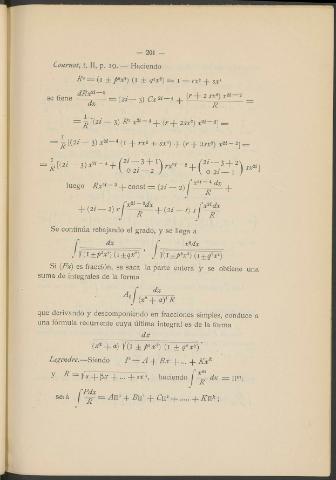 — 201 —
Cournot, t. II, p. 19.— Haciendo
R² = (1 ± p²x²) (1 ± q²x²) = 1 — rx² + sx⁴
se tiene dRx²ⁱ⁻³ / dx = (2i — 3) Cx²ⁱ⁻⁴ + (r + 2 sx²) x²ⁱ⁻² / R =
= 1/R [(2i — 3) R² x²ⁱ⁻⁴ + (r + 2sx²) x²ⁱ⁻²] =
= 1/R [(2i — 3) x²ⁱ⁻⁴ (1 + rx² + sx⁴) + (r + 2sx²) x²ⁱ⁻²] =
= 1/R [(2i — 3) x²ⁱ⁻⁴ + (2i — 3 + 1 ó 2i — 2) rx²ⁱ⁻² + (2i — 3 + 2 ó 2i — 1) sx²ⁱ]
luego Rx²ⁱ⁻³ + const = (2i — 3) ∫ x²ⁱ⁻⁴ dx / R +
+ (2i — 2) r ∫ x²ⁱ⁻²dx / R + (2i — 1) s ∫ x²ⁱdx / R
Se continúa rebajando el grado, y se llega a
∫ dx / √(1±p²x²) (1±q²x²) , ∫ x²dx / √(1±p²x²) (1±q²x²)
Si (Px) es fracción, se saca la parte entera y se obtiene una
suma de integrales de la forma
A₁ ∫ dx / (x² + a)ⁱ R
que derivando y descomponiendo en fracciones simples, conduce a
una fórmula recurrente cuya última integral es de la forma
dx / (x² + a) √(1 ± p²x²) (1 ± q²x²) .
Legendre.—Siendo P = A + Bx + ... + Kxᵏ
y R = √α + βx + ... + εx⁴, haciendo ∫ xᵐ / R dx = Πᵐ;
será ∫ Pdx / R = AΠ⁰ + BΠ¹ + CΠ² + .... + KΠᵏ;